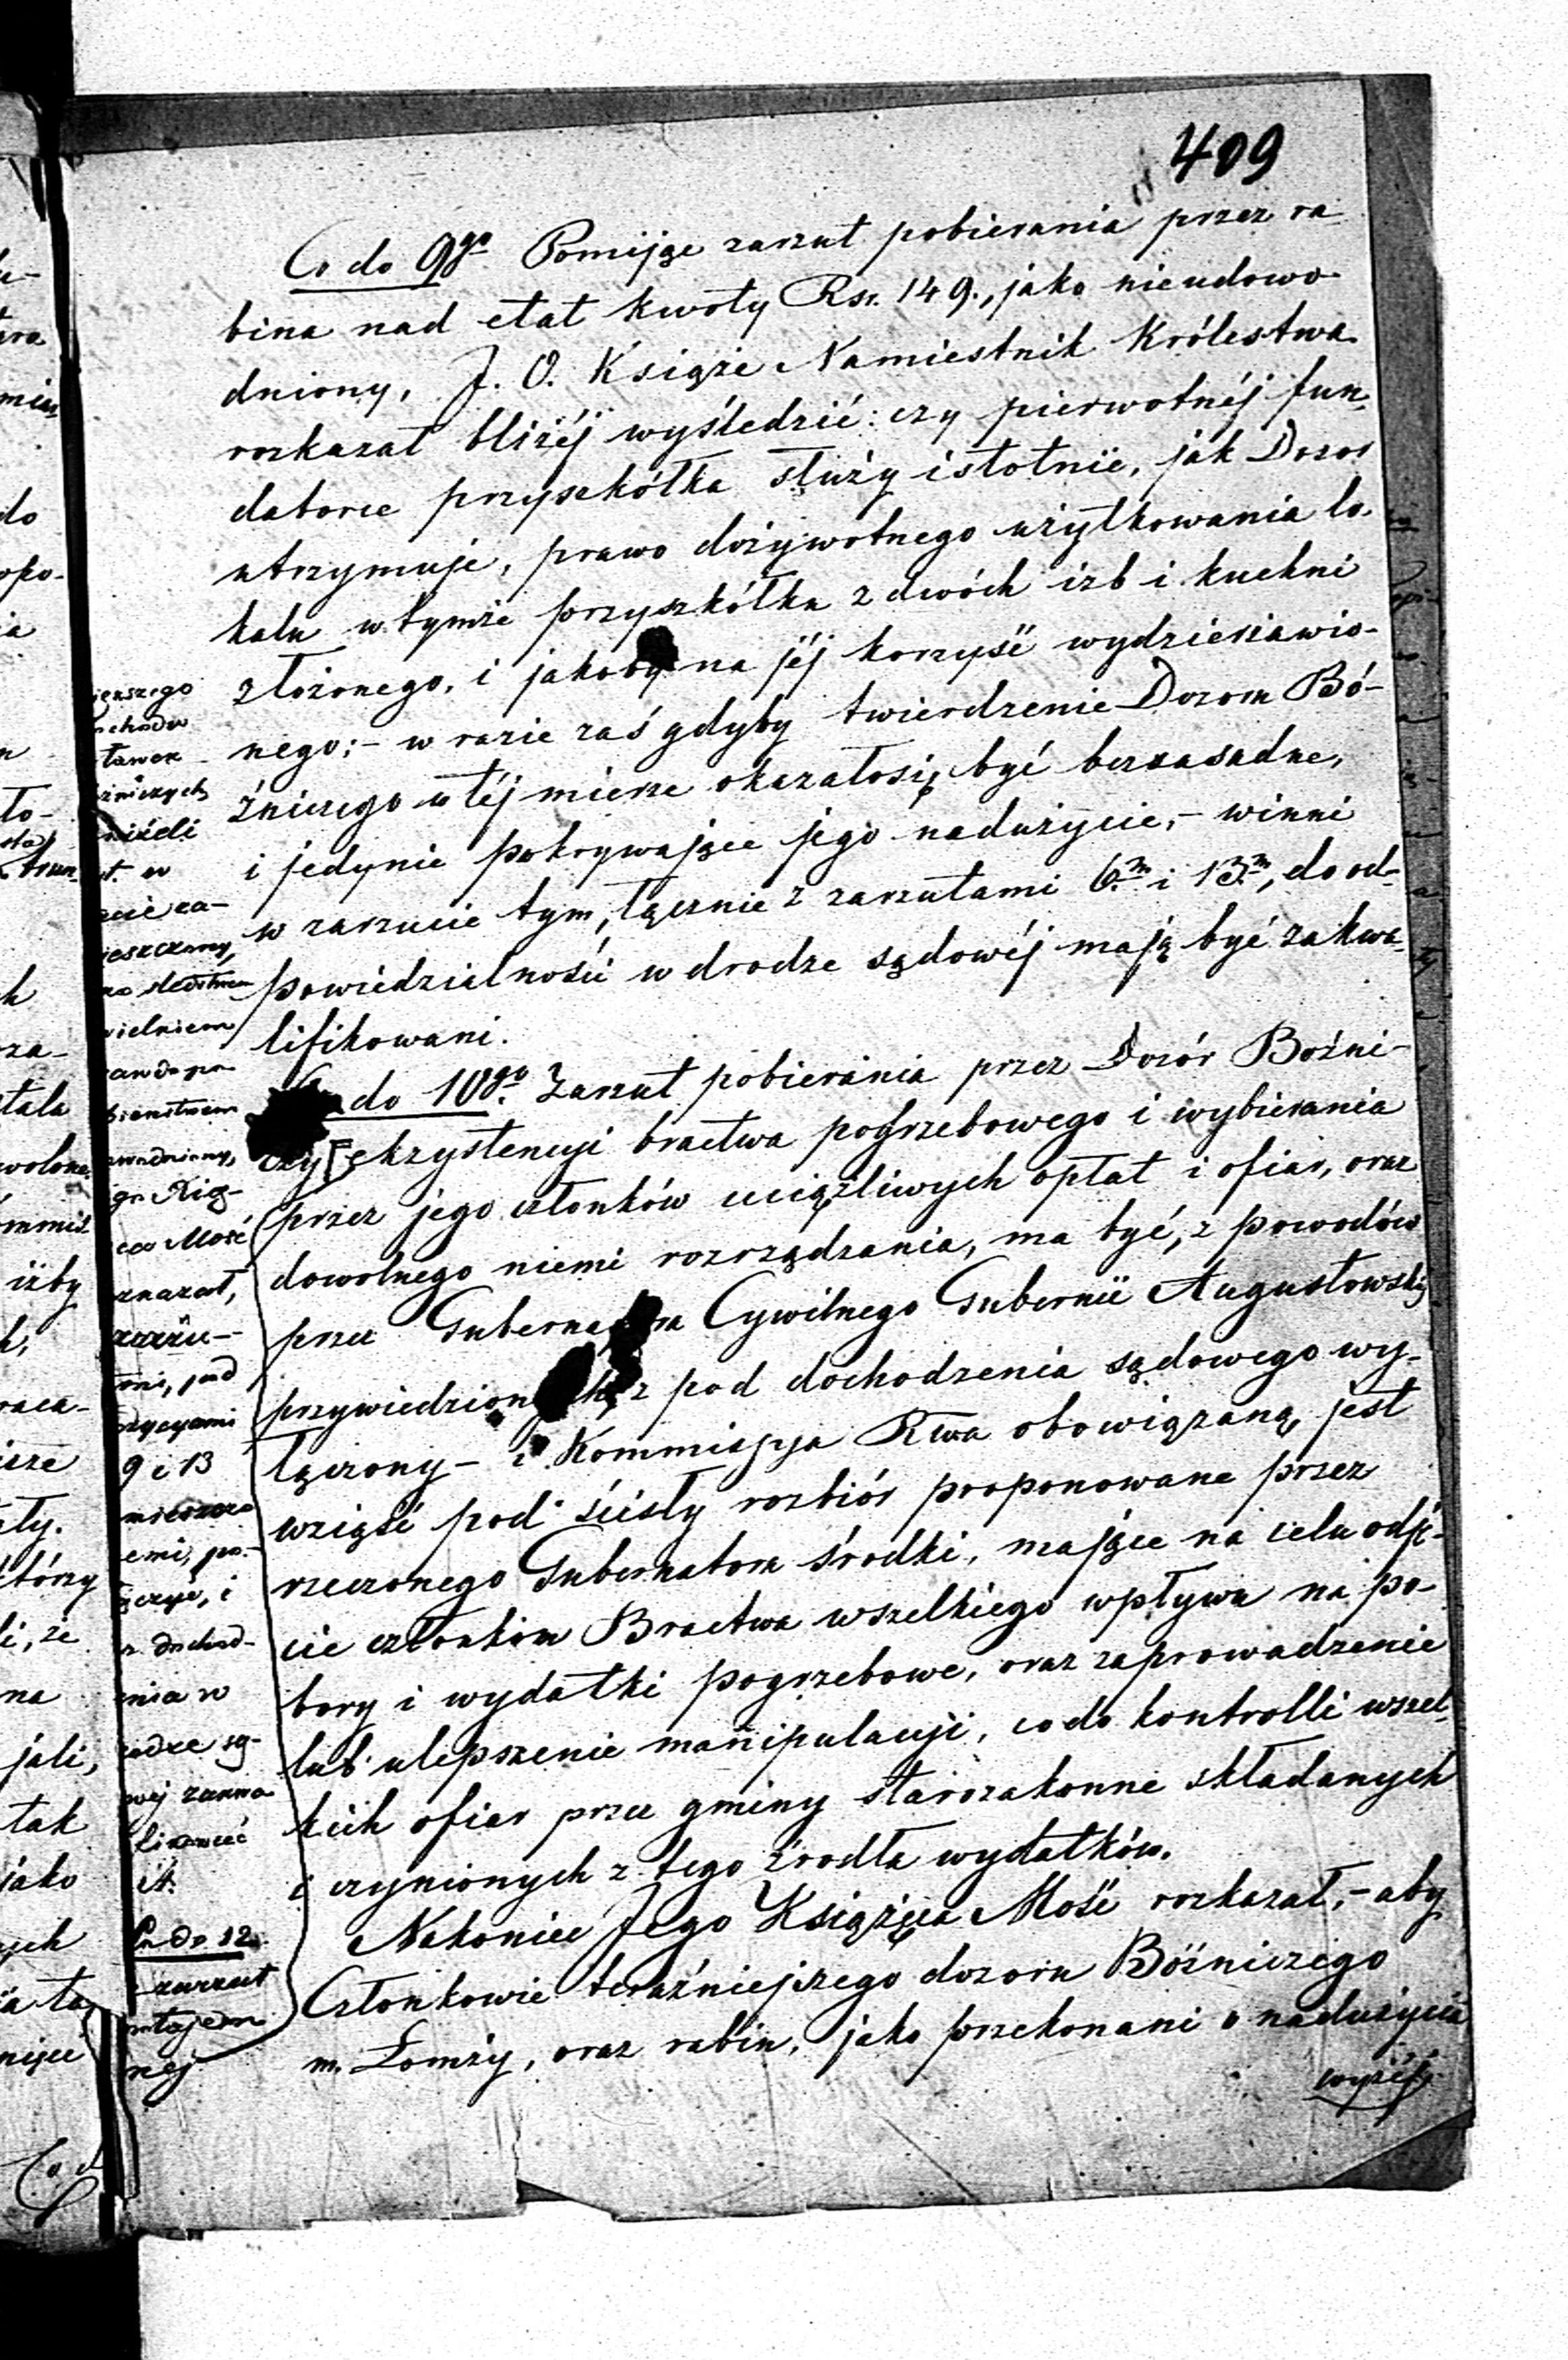 409
Co do 9go Pomijąc zarzut pobierania przez ra-
bina nad etat kwoty Rsr. 149., jako nieudowo-
dniony, J. O. Książe Namiestnik Królestwa
rozkazał bliżéj wyśledzić: czy pierwotnéj fun-
datorce przyszkółka służy istotnie, jak Dozór
utrzymuje, prawo dożywotnego użytkowania lo-
kalu w tymże przyszkółku z dwóch izb i kuchni
złożonego, i jakoby na jéj korzyść wydzierżawio-
nego; - w razie zaś gdyby twierdzenie Dozoru Bó-
źniczego w téj mierze okazało się być bezzasadne,
i jedynie pokrywające jego nadużycie, - winni
w zarzucie tym, łącznie z zarzutami 6.m i 13.m, do od-
powiedzialności w drodze sądowéj mają być zakwa-
lifikowani.
do 10go. Zarzut pobierania przez Dozór Bóźni-
czy ekzystencyi bractwa pogrzebowego i wybierania
przez jego członków uciążliwych opłat i ofiar, oraz
dowolnego niemi rozrządzania, ma być, z powodów
przez Gubernatora Cywilnego Gubernii Augustowskiéj
przywiedzionych, z pod dochodzenia sądowego wy-
łączony - i Kommissya Rwa obowiązaną jest
wziąść pod ścisły rozbiór proponowane przez
rzeczonego Gubernatora środki, mające na celu odję-
cie członkom Bractwa wszelkiego wpływu na po-
bory i wydatki pogrzebowe, oraz zaprowadzenie
lub ulepszenie manipulacyi, co do kontrolli wszel-
kich ofiar przez gminy starozakonne składanych
i czynionych z tego źrodła wydatków.
Nakoniec Jego Książęca Mość rozkazał, - aby
Członkowie teraźniejszego dozoru Bóźniczego
m. Łomży, oraz rabin, jako przekonani o nadużycia
wyżéj
chodu
ławek
źniczych
niżeli
w
cie za-
ieszczony,
Mość
znazał,
9 i 13
i
dochod-
nia w
odze są-
it.
Co do 12.
zarzut
nej